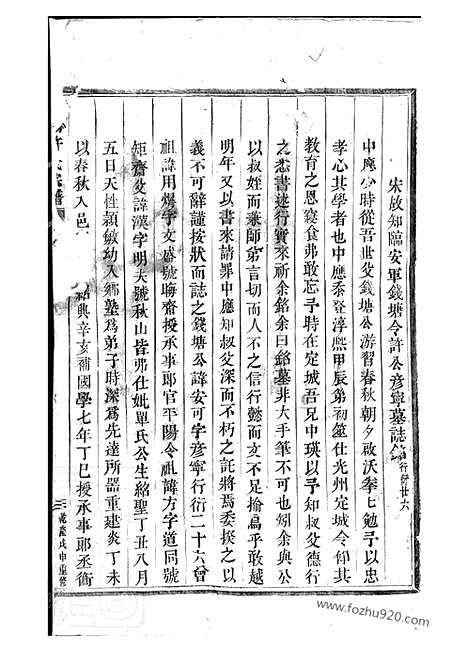 宋故知臨安軍錢塘令許公彥寧墓誌銘行衍廿六
中應少時從吾世父錢塘公游習春秋朝夕啟沃拳七勉予以忠
孝心其學者也中應忝登淳熈甲辰第初筮仕光州定城令仰其
教育之恩寢食弗敢忘予時在定城吾兄中瑛以予知叔父德行
之悉書述行實來祈余銘余曰銘墓非大手筆不可矧余與公
以叔姪而兼師弟言切而人不之信行懿而文不足揄爲乎敢越
明年又以書來請罪中應知叔父深而不朽之託將焉委揆之以
義不可辭謹按狀而誌之錢塘公諱安可字彥寧行衍二十六曾
祖諱用燁字文盛號晦齋授承事郎官平陽令祖諱方字道同號
矩齋父諱漢字明夫號秋山皆弗仕妣單氏公生紹聖丁丑八月
五日天性頴敏幼入鄉塾爲弟子時深爲先達所器重建炎丁未
以春秋入邑 紹興辛亥補國學七年丁巳授承事郎丞衢
許氏宗譜
乾隆戊申重修
www.fozhu920.com